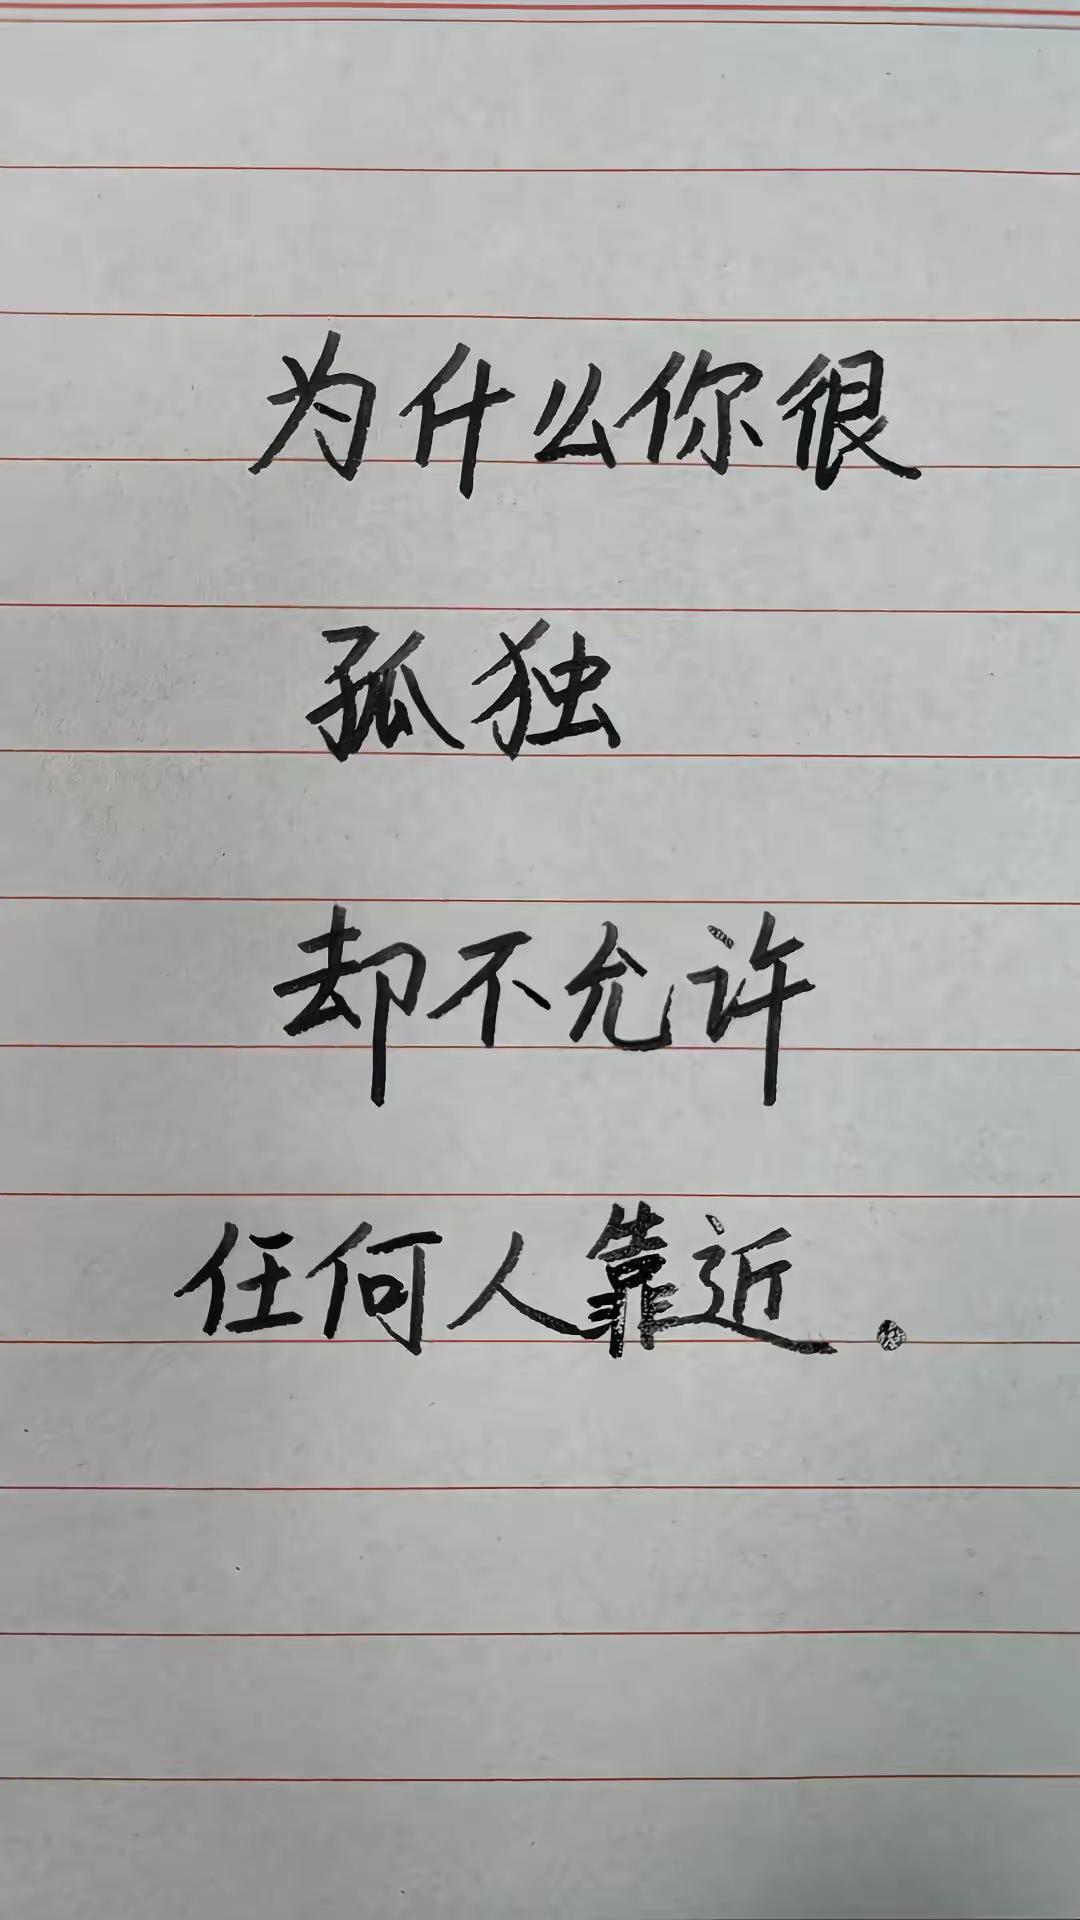 为什么你很
孤独
却不允许
任何人靠近。